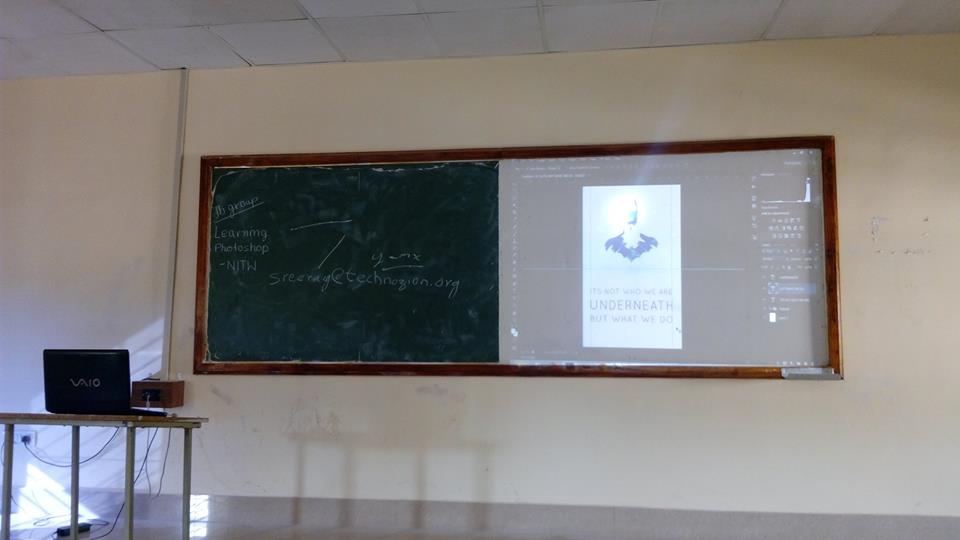 fb group
Learning
Photoshop
-NITW
y=mx
sreerag@technozion.org
ITS NOT WHO WE ARE
UNDERNEATH
BUT WHAT WE DO
VAIO